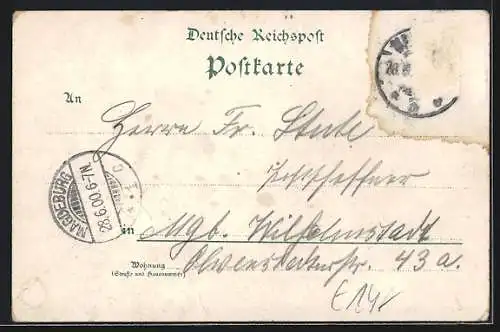 Deutsche Reichspost
Postkarte
An
Herrn Fr. Stute
Postschaffner
in Mgb. Wilhelmstadt
Wohnung
(Straße und Hausnummer)
Olvenstedterstr. 43 a.
MAGDEBURG
28.6.00.6-7N.
E14